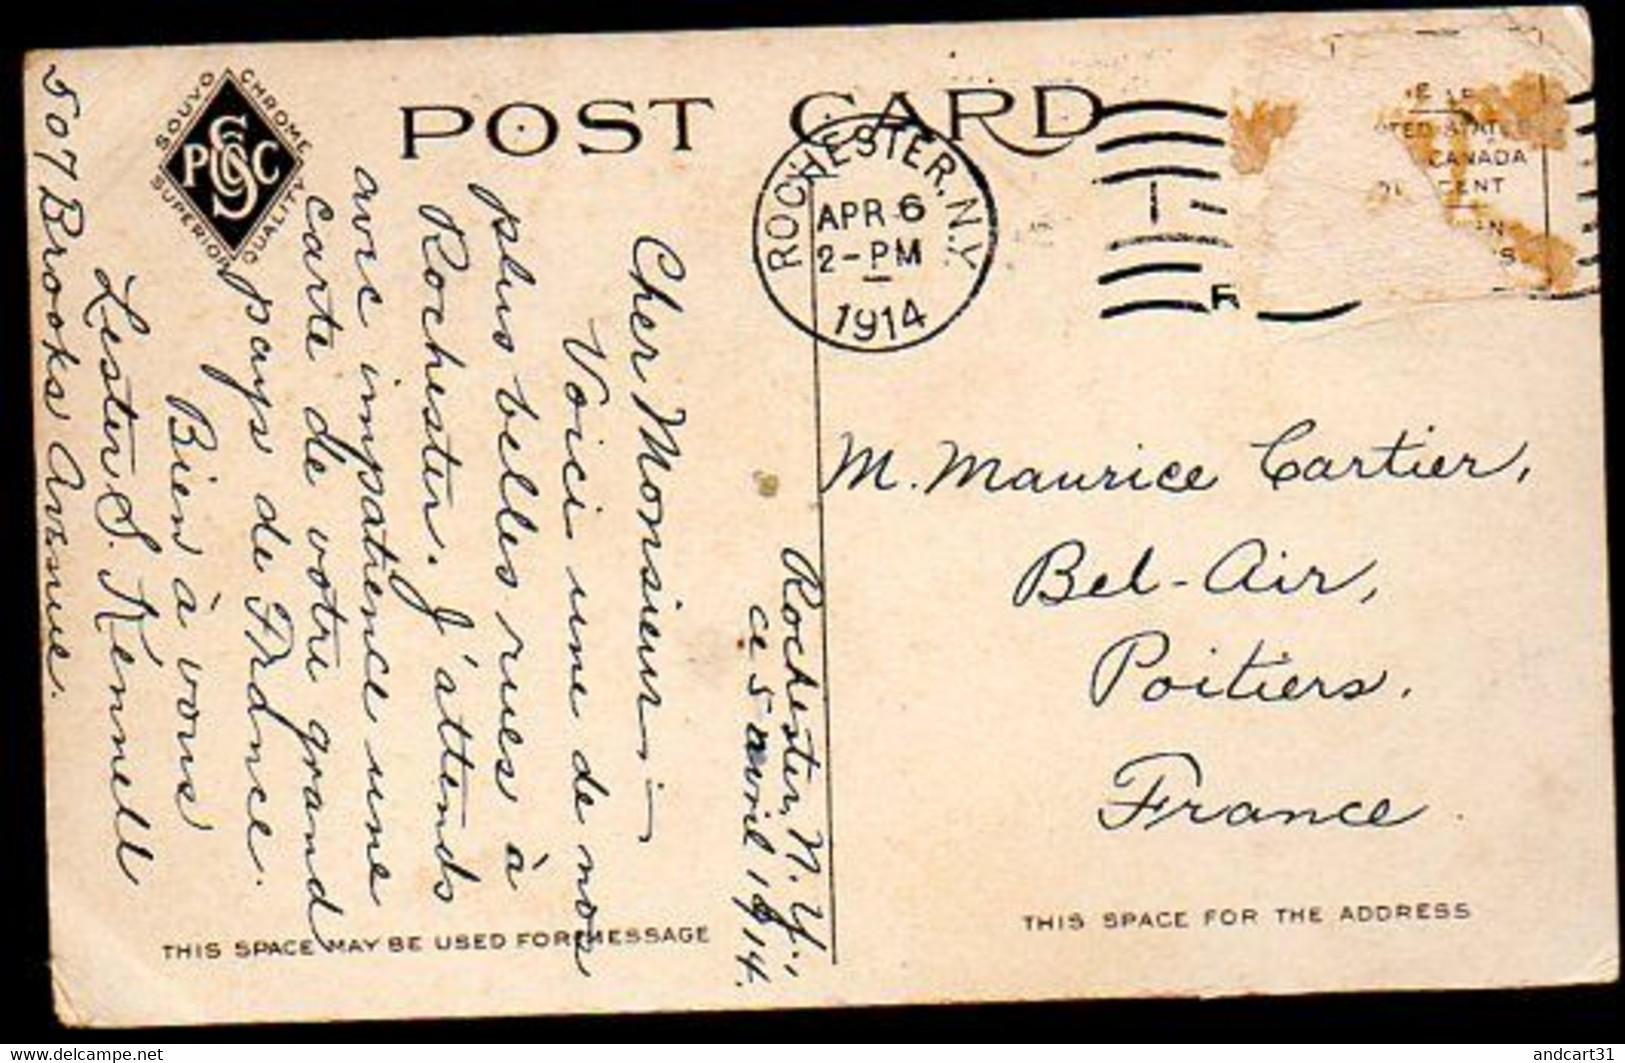 POST CARD
SOUVO CHROME
SUPERIOR QUALITY
PSCS
ROCHESTER, N.Y.
APR 6
2-PM
1914
TED STATES
CANADA
CENT
Rochester, N. Y.,
ce 5 avril 1914.
Cher Monsieur:—
Voici une de nos
plus belles rues à
Rochester. J'attends
avec impatience une
carte de votre grand
pays de France.
Bien à vous
Lester S. Kennell
507 Brooks Avenue.
M. Maurice Cartier,
Bel-Air,
Poitiers.
France
THIS SPACE MAY BE USED FOR MESSAGE
THIS SPACE FOR THE ADDRESS
delcampe.net
andcart31